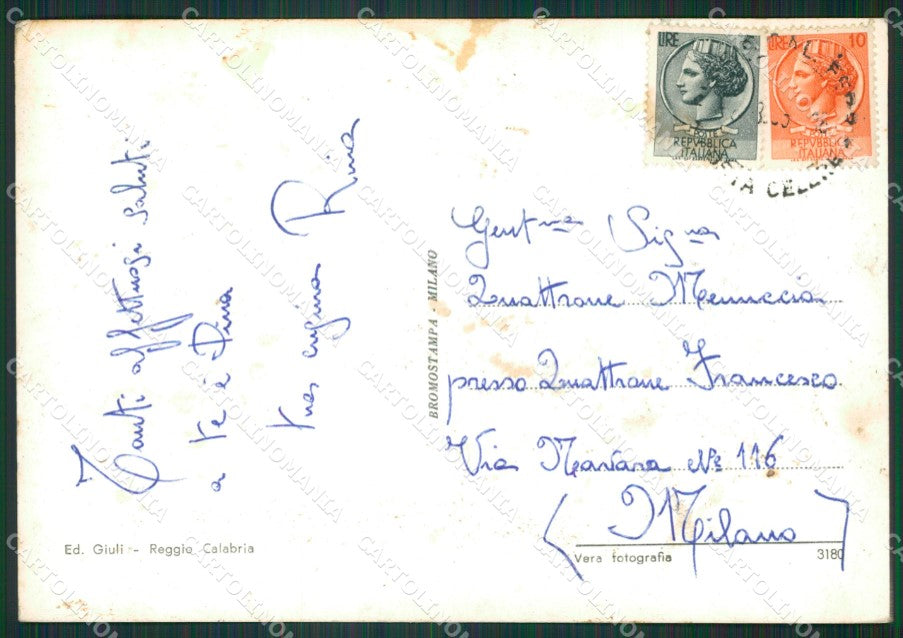 Tanti affettuosi saluti
a te e Pina
tua cugina Rina
BROMOSTAMPA - MILANO
Ed. Giuli - Reggio Calabria
LIRE
REPVBBLICA
ITALIANA
LIRE 10
REPVBBLICA
ITALIANA
CELERE
Gent.ma Sig.na
Quattrone Menuccia
presso Quattrone Francesco
Via Nº 116
Milano
Vera fotografia 3180
CARTOLINOMANIA